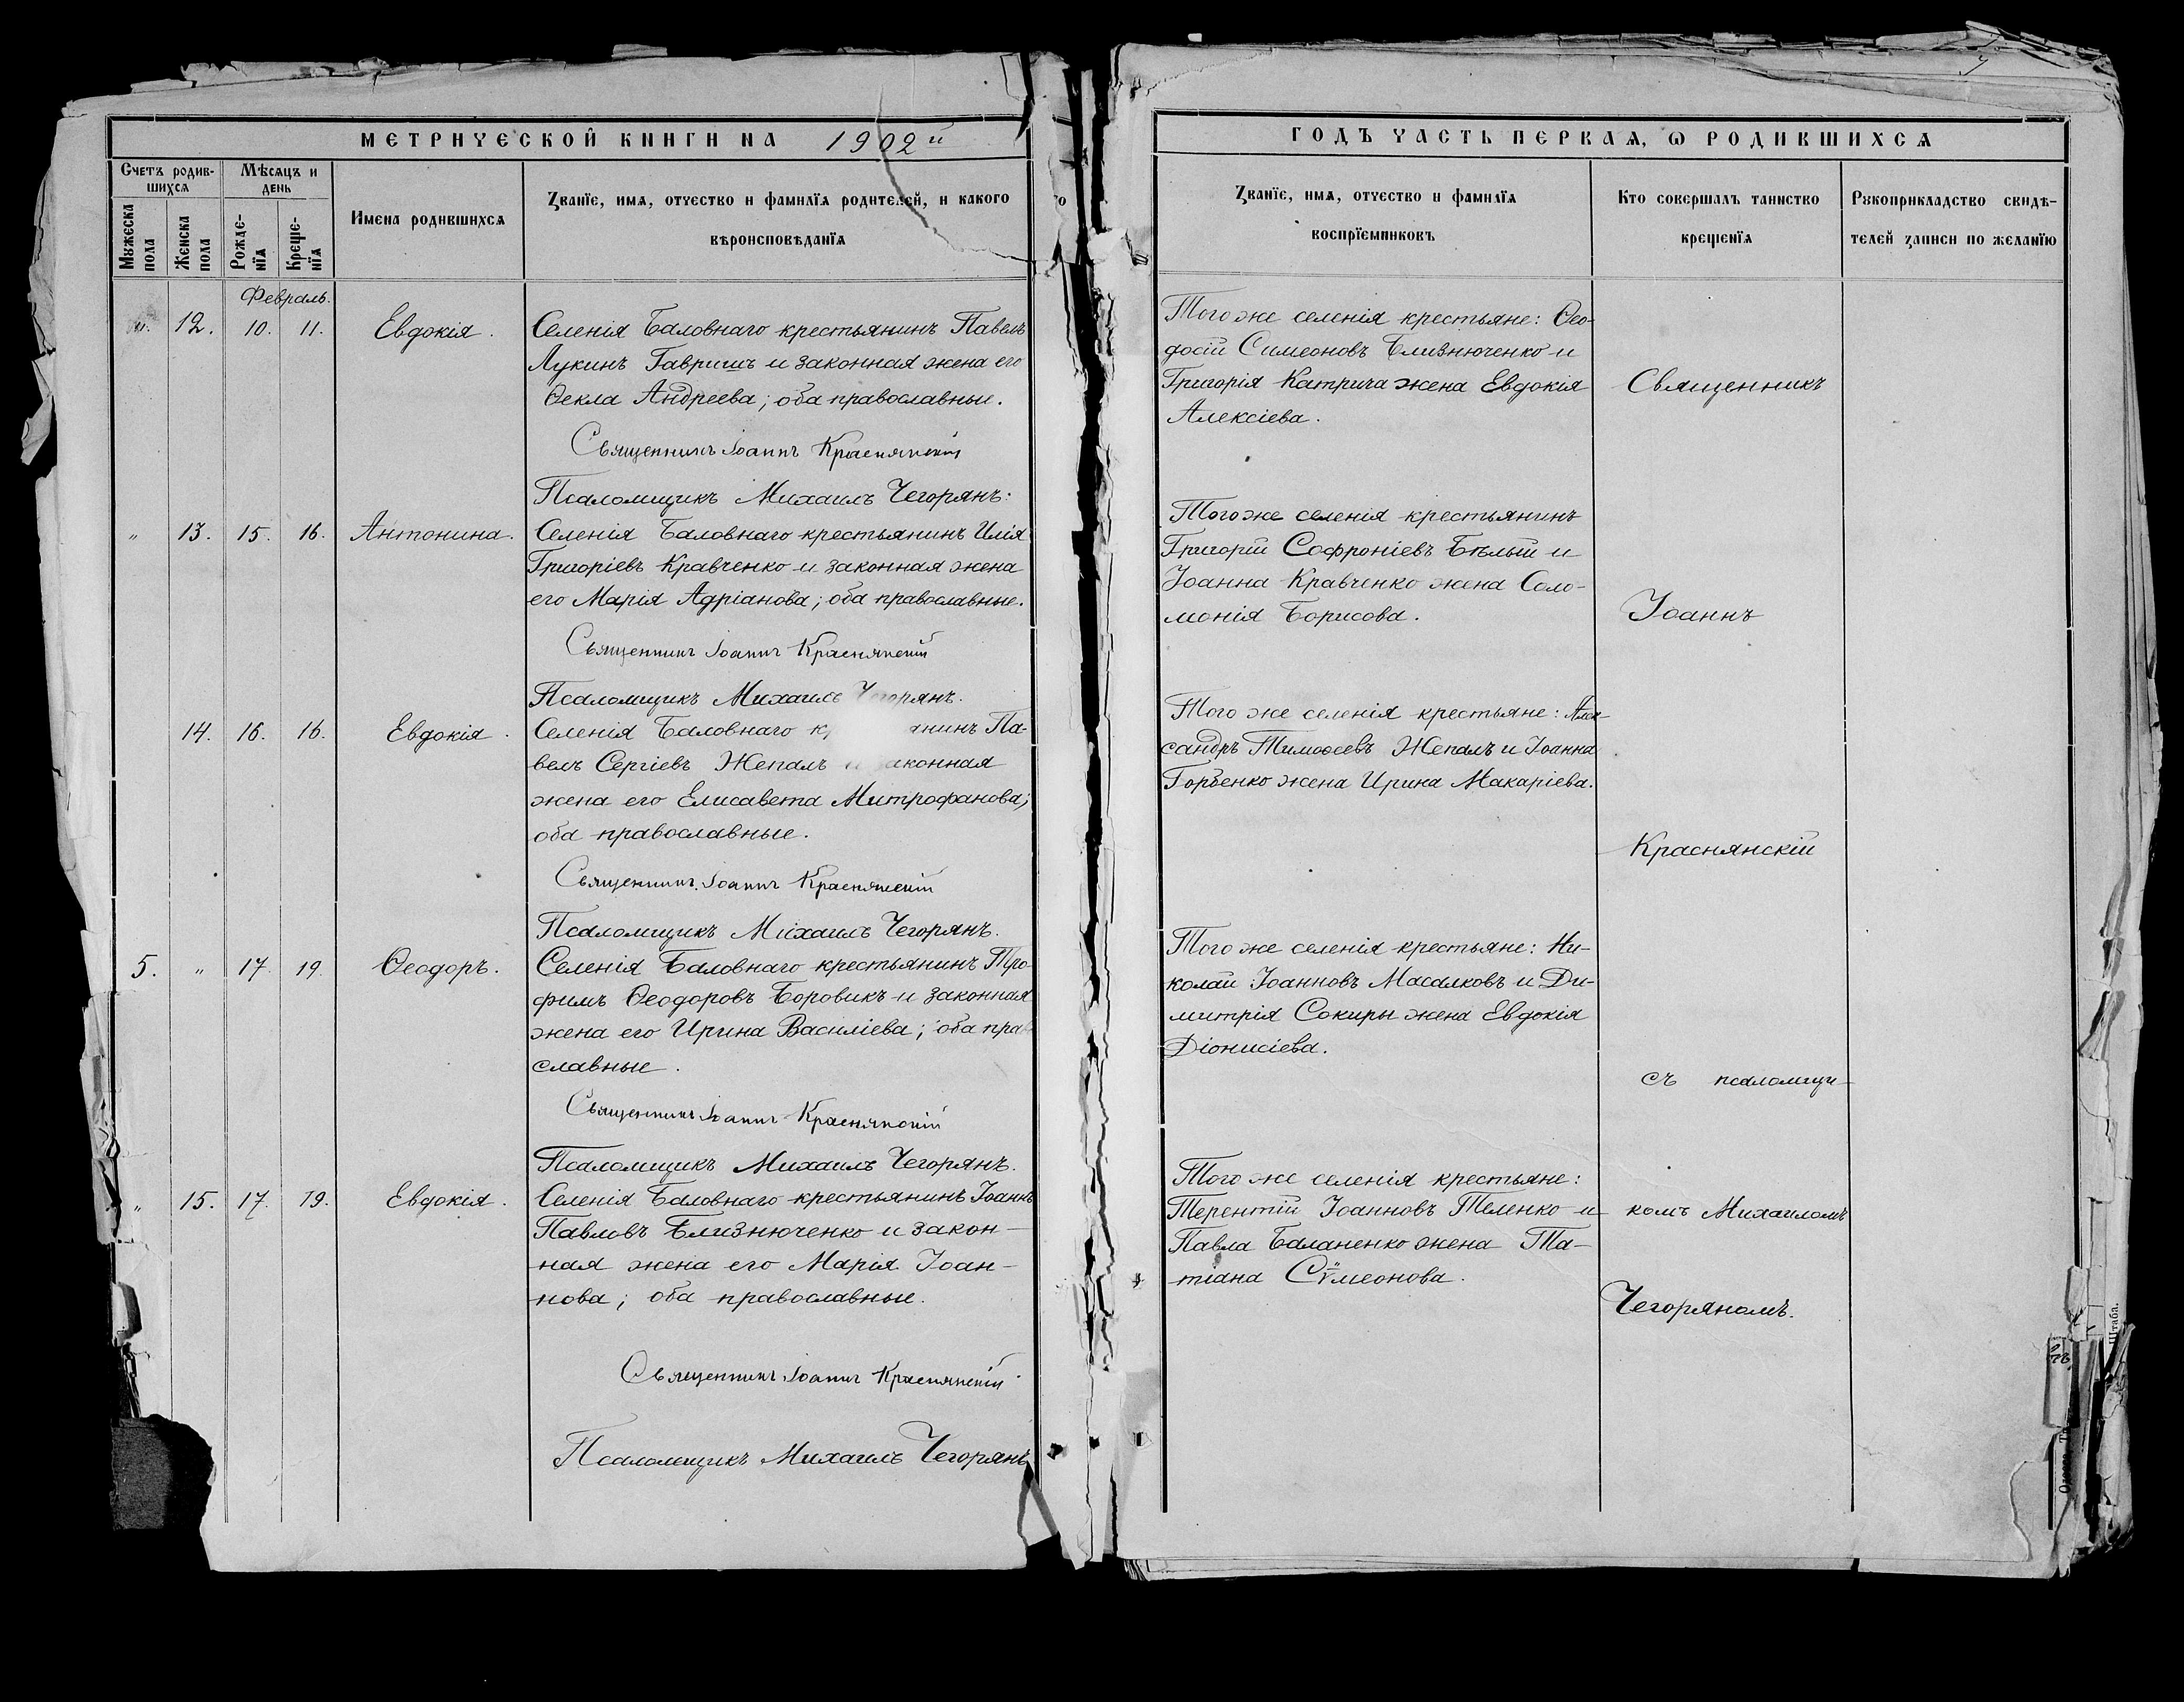 МЕТРИЧЕСКОЙ КНИГИ НА 1902й
Счетъ родившихся
Мѣсяцъ и день
Мужеска пола
Женска пола
Рожденїя
Крещенїя
Имена родившихся
Званїе, имя, отчество и фамилїя родителей, и какого
вѣроисповѣданїя
Февраль.
„ 12. 10. 11. Евдокія. Селенія Баловнаго крестьянинъ Павелъ
Лукинъ Гавришъ и законная жена его
Ѳекла Андреева; оба православные.
Священникъ Іоаннъ Краснянскій
Псаломщикъ Михаилъ Чегорянъ.
„ 13. 15. 16. Антонина. Селенія Баловнаго крестьянинъ Илія
Григоріевъ Кравченко и законная жена
его Марія Адріанова; оба православные.
Священникъ Іоаннъ Краснянскій
Псаломщикъ Михаилъ Чегорянъ.
14. 16. 16. Евдокія. Селенія Баловнаго к анинъ Па-
велъ Сергіевъ Жепалъ и законная
жена его Елисавета Митрофанова;
оба православные.
Священникъ Іоаннъ Краснянскій
Псаломщикъ Михаилъ Чегорянъ.
5. „ 17. 19. Ѳеодоръ. Селенія Баловнаго крестьянинъ Тро-
фимъ Ѳеодоровъ Боровикъ и законная
жена его Ирина Василіева; оба пра
славные.
Священникъ Іоаннъ Краснянскій
Псаломщикъ Михаилъ Чегорянъ.
„ 15. 17. 19. Евдокія. Селенія Баловнаго крестьянинъ Іоаннъ
Павловъ Близнюченко и закон-
ная жена его Марія Іоан-
нова; оба православные.
Священникъ Іоаннъ Краснянскій
Псаломщикъ Михаилъ Чегорянъ
ГОДЪ ЧАСТЬ ПЕРВАЯ, Ѡ РОДИВШИХСЯ
Званїе, имя, отчество и фамилїя
воспрїемниковъ
Кто совершалъ таинство
крещенїя
Рукоприкладство свидѣ-
телей записи по желанїю
Того же селенія крестьяне: Ѳео-
досій Симеоновъ Близнюченко и
Григорія Катрича жена Евдокія
Алексіева.
Священникъ
Того же селенія крестьянинъ
Григорій Софроніевъ Бѣлый и
Іоанна Кравченко жена Соло-
монія Борисова.
Іоаннъ
Того же селенія крестьяне: Алек-
сандръ Тимоѳеевъ Жепалъ и Іоанна
Горбенко жена Ирина Макаріева.
Краснянскій
Того же селенія крестьяне: Ни-
колай Іоанновъ Масалковъ и Ди-
митрія Сокиры жена Евдокія
Діонисіева.
съ псаломщи-
Того же селенія крестьяне:
Терентій Іоанновъ Теленко и
Павла Баланенко жена Та-
тіана Сѷмеонова.
комъ Михаиломъ
Чегоряномъ.
Штаба.